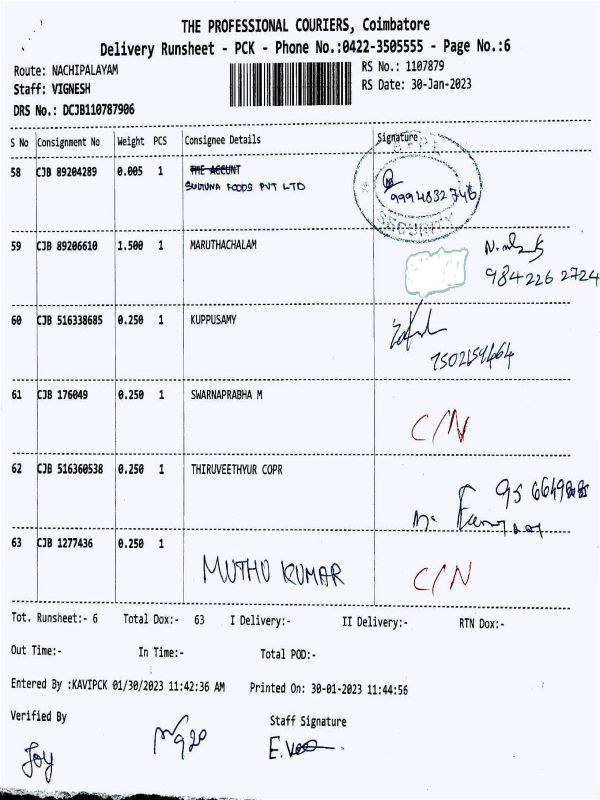 THE PROFESSIONAL COURIERS, Coimbatore
Delivery Runsheet - PCK - Phone No.:0422-3505555 - Page No.:6
Route: NACHIPALAYAM
RS No.: 1107879
Staff: VIGNESH
RS Date: 30-Jan-2023
DRS No.: DCJB110787906
S No Consignment No Weight PCS Consignee Details Signature
58 CJB 89204289 0.005 1 THE ACCUNT
SULTUNA FOODS PVT LTD
9994832746
SECURITY
59 CJB 89206610 1.500 1 MARUTHACHALAM
984226 2724
60 CJB 516338685 0.250 1 KUPPUSAMY
61 CJB 176049 0.250 1 SWARNAPRABHA M
C/N
62 CJB 516360538 0.250 1 THIRUVEETHYUR COPR
63 CJB 1277436 0.250 1
MUTHU KUMAR C/N
Tot. Runsheet:- 6 Total Dox:- 63 I Delivery:- II Delivery:- RTN Dox:-
Out Time:- In Time:- Total POD:-
Entered By :KAVIPCK 01/30/2023 11:42:36 AM Printed On: 30-01-2023 11:44:56
Verified By Staff Signature
Joy